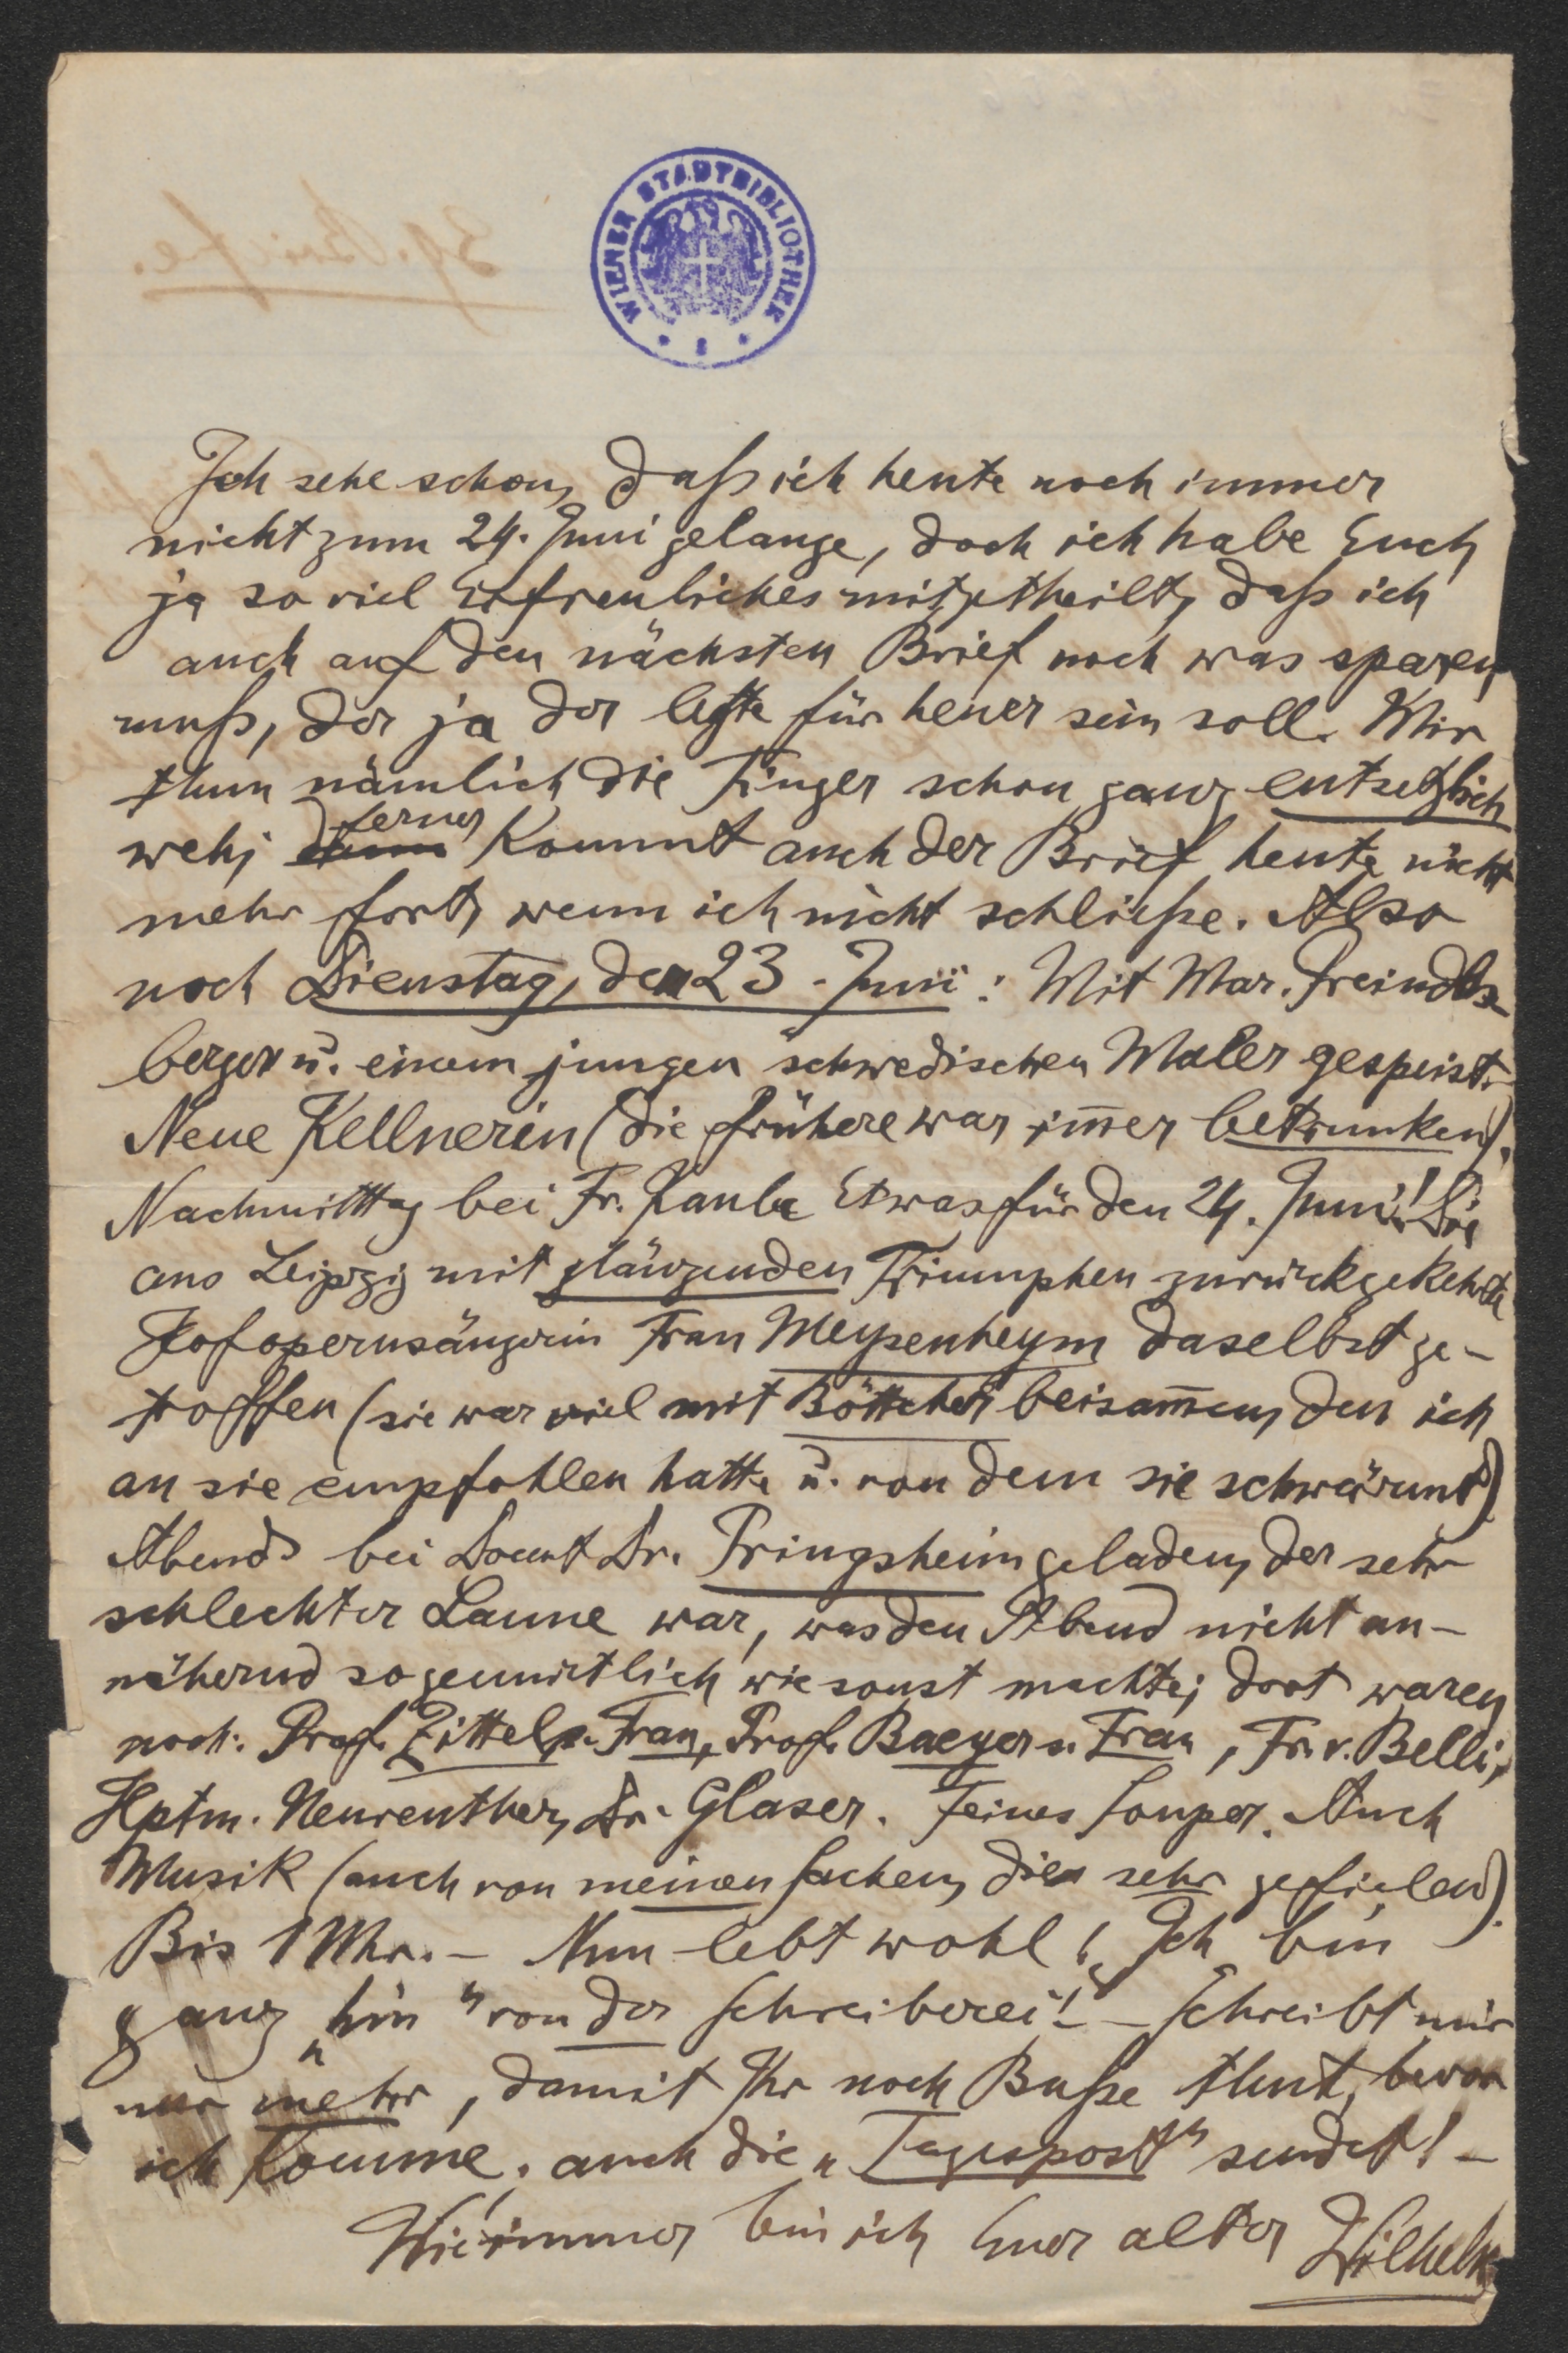 WIENER STADTBIBLIOTHEK
Ich sehe schon, daß ich heute noch immer
nicht zum 24. Juni gelange, doch ich habe Euch
ja so viel Erfreuliches mitgetheilt, daß ich
auch auf den nächsten Brief noch was sparen
muß, der ja der letzte für heuer sein soll. Mir
thun nämlich die Finger schon ganz entsetzlich
weh; ferner kommt auch der Brief heute nicht
mehr fort, wenn ich nicht schließe. Also
noch Dienstag, den 23. Juni: Mit Mar. Freindls-
berger u. einem jungen schwedischen Maler gespeist.
Neue Kellnerin (die frühere war im̅er betrunken).
Nachmittag bei Fr. Kaula Etwas für den 24. Juni! Die
aus Leipzig mit glänzenden Triumphen zurückgekehrte
Hofopernsängerin Frau Meysenheym daselbst ge-
troffen (sie war viel mit Böttcher beisam̅en, den ich
an sie empfohlen hatte u. von dem sie schwärmt).
Abends bei Docent Dr. Pringsheim geladen, der sehr
schlechter Laune war, was den Abend nicht an-
nähernd so gemüthlich wie sonst machte; dort waren
noch: Prof. Zittel u. Frau, Prof. Baeyer u. Frau, Fr. v. Belli,
Hptm. Neureuther, Dr. Glaser. Feines Souper. Auch
Musik (auch von meinen Sachen, die sehr gefielen).
Bis 1 Uhr. – Nun lebt wohl! Ich bin
ganz „hin" von der Schreiberei! – Schreibt mir
nur mehr, damit Ihr noch Buße thut, bevor
ich komme. auch die „Tagespost" sendet! –
Wie immer bin ich Euer alter Wilhelm